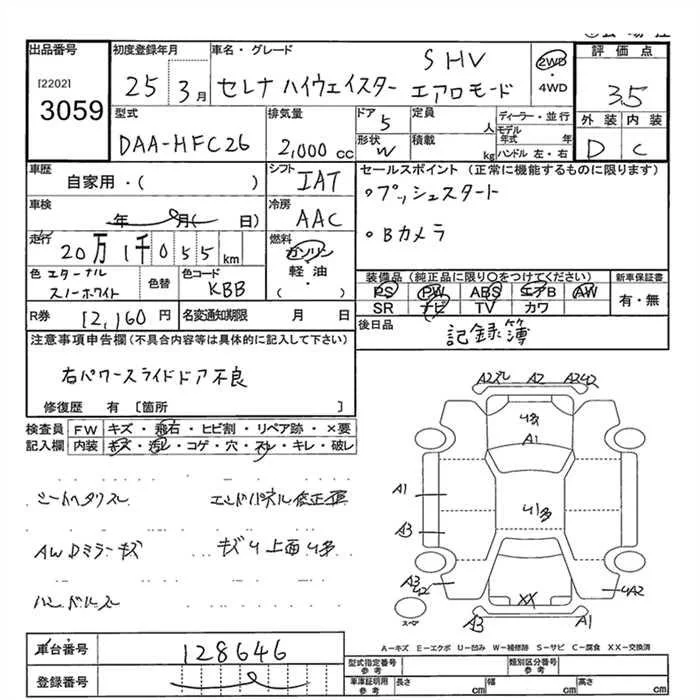 出品番号 初度登録年月 車名・グレード 評価点
[2202] 3059
25 3月 セレナ ハイウェイスター SHV エアロモード
2WD・4WD
3.5
外装 内装
D C
型式 排気量 ドア 定員 ディーラー・並行
DAA-HFC26 2,000cc 5 人 モデル年式 年
形状 W 積載 kg ハンドル 左・右
車歴 シフト セールスポイント (正常に機能するものに限ります)
自家用・( ) IAT
○プッシュスタート
車検 冷房
年 月( 日) AAC
○Bカメラ
走行 燃料
20万1千055km ガソリン・軽油・( )
色 エターナルスノーホワイト 色替 色コード KBB
装備品 (純正品に限り○をつけてください) 新車保証書
PS PW ABS エアB AW 有・無
SR ナビ TV カワ
R券 12,160円 名変通知期限 月 日
後日品 記録簿
注意事項申告欄(不具合内容等は具体的に記入して下さい)
右パワースライドドア不良
修復歴 有 [箇所 ]
検査員記入欄 FW キズ・飛石・ヒビ割・リペア跡・×要
内装 キズ・汚レ・コゲ・穴・スレ・キレ・破レ
シートヘタリスレ エンドパネル修正歪
AWDミラーキズ キズU上面U多
ハンドルスレ
A2 A2
U多
A1
A1
U多
A3
A3
U2 UA2
XX
スペア
A3 A1
A-キズ E-エクボ U-凹み W-補修跡 S-サビ C-腐食 XX-交換済
車台番号 128646
登録番号
型式指定番号 参考 類別区分番号 参考
車庫証明用 参考 長さ cm 幅 cm 高さ cm